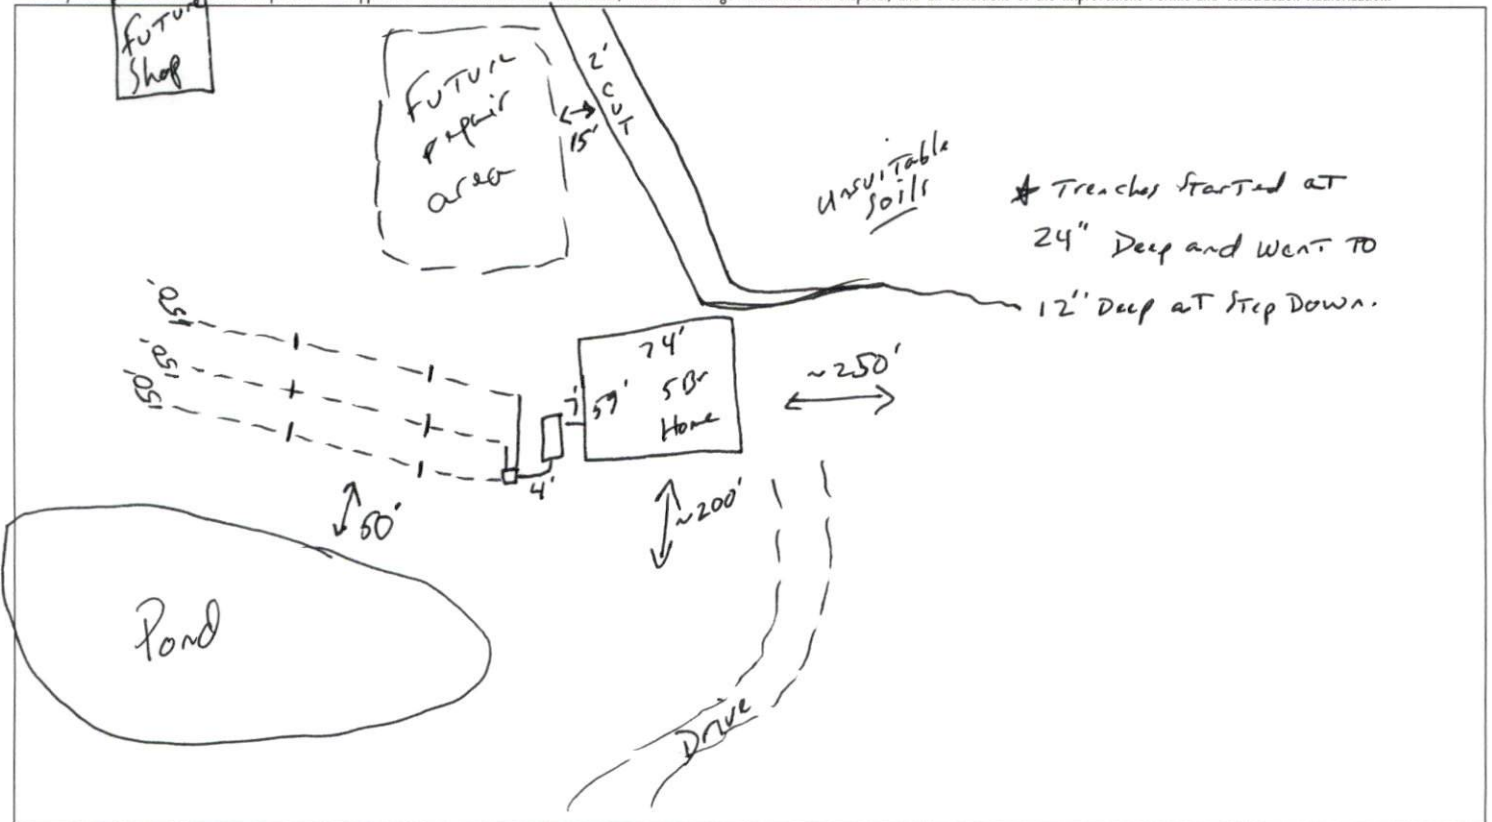 Future
Shop
Future
repair
area
15'
2'
CUT
Unsuitable
Soils
* Trenches Started at
24" Deep and went to
12" Deep at Step Down.
150'
150'
150'
7'
59'
74'
5 Br
Home
~250'
4'
50'
~200'
Pond
Drive